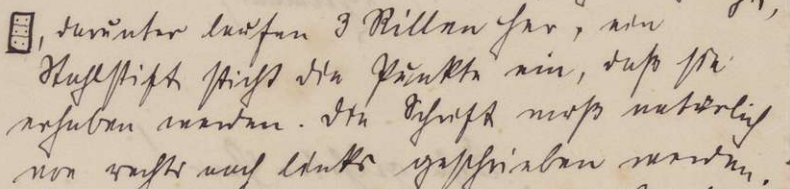 , darunter laufen 3 Rillen her, ein
Stahlstift sticht die Punkte ein, daß sie
erhaben werden. Die Schrift muß natürlich
von rechts nach links geschrieben werden.